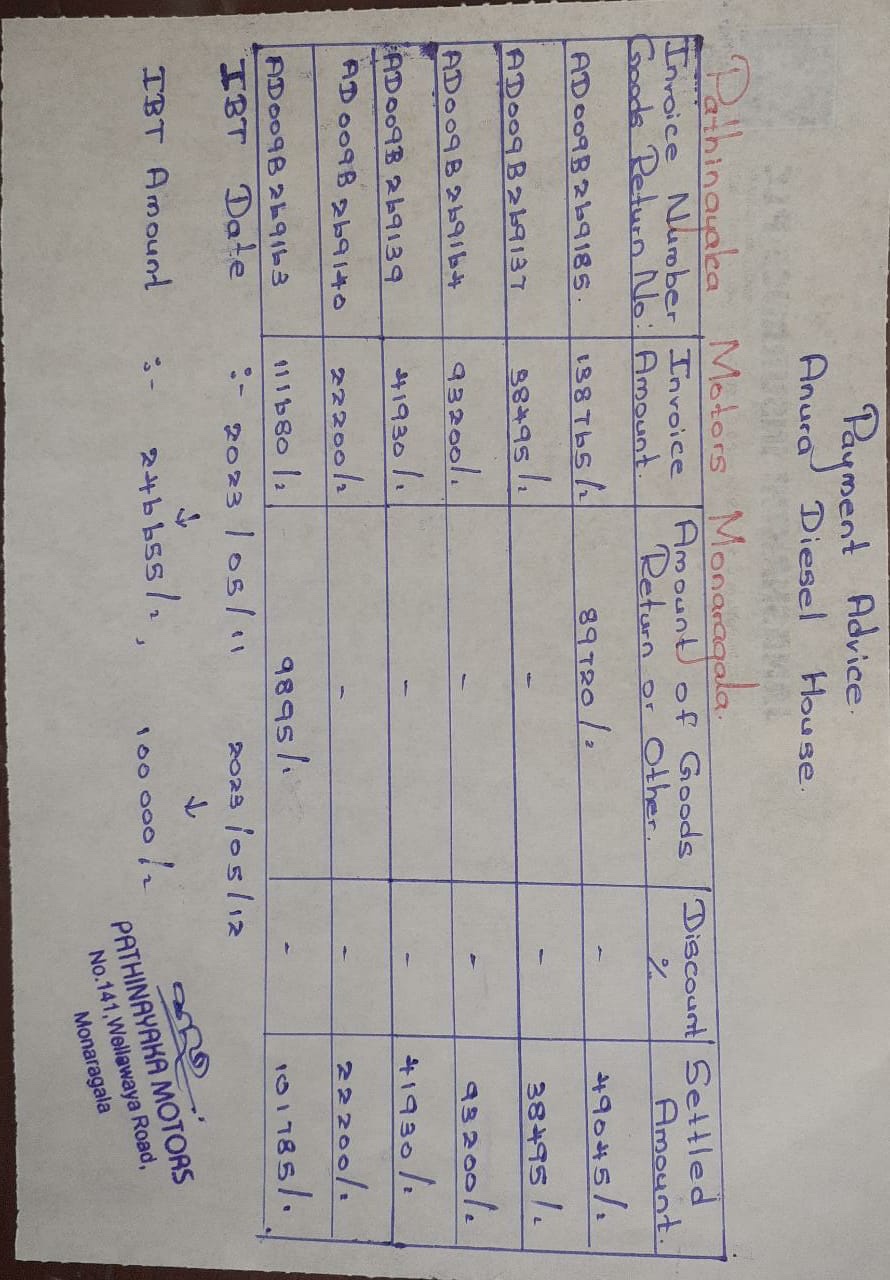 Payment Advice.
Anura Diesel House.
Pathinayaka Motors Monaragala.
Invoice Number Goods Return No: | Invoice Amount. | Amount of Goods Return or Other. | Discount % | Settled Amount.
AD009B269185. | 138765/= | 89720/= | - | 49045/=
AD009B269137 | 38495/= | - | - | 38495/=
AD009B269164 | 93200/= | - | - | 93200/=
AD009B269139 | 41930/= | - | - | 41930/=
AD009B269140 | 22200/= | - | - | 22200/=
AD009B269163 | 111680/= | 9895/= | - | 101785/=
IBT Date :- 2023/05/11 2023/05/12
IBT Amount :- 246655/=, 100000/=
PATHINAYAKA MOTORS
No.141, Wellawaya Road,
Monaragala